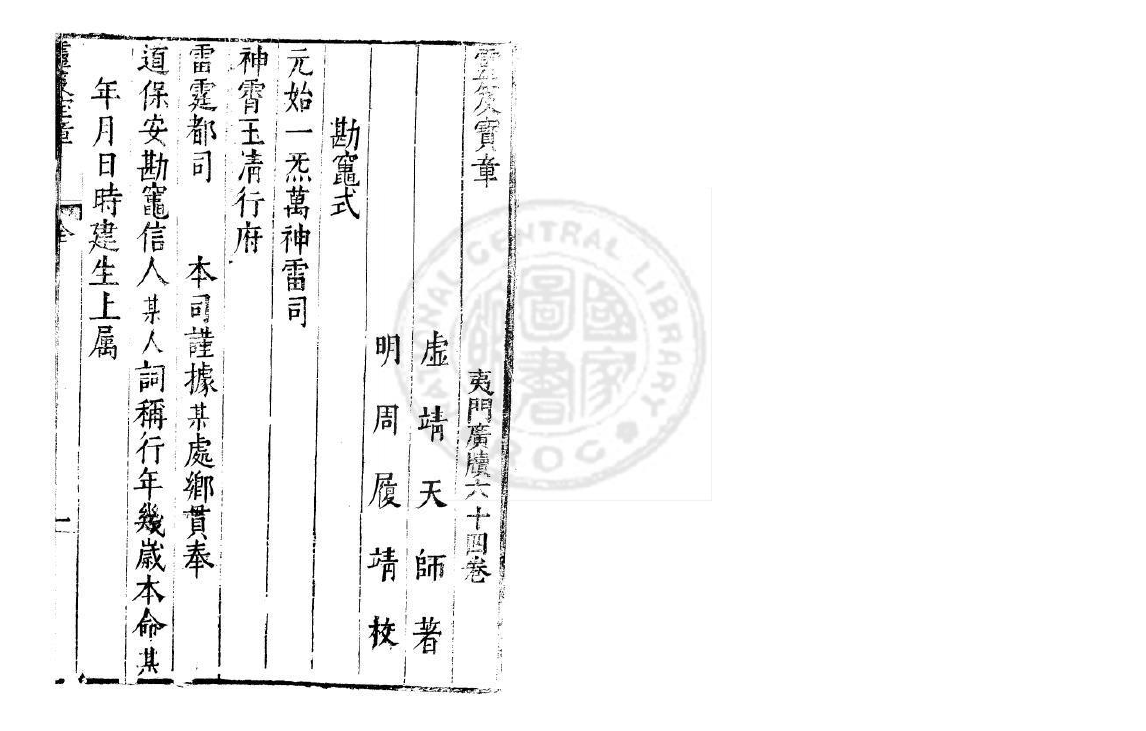 靈笈寶章
夷門廣牘六十四卷
虛靖天師著
明周履靖校
勘竈式
元始一炁萬神雷司
神霄玉清行府
雷霆都司 本司謹據某處鄉貫奉
道保安勘竈信人某人詞稱行年幾歲本命某
年月日時建生上属
全
一
NATIONAL CENTRAL LIBRARY
ROC
國家圖書館